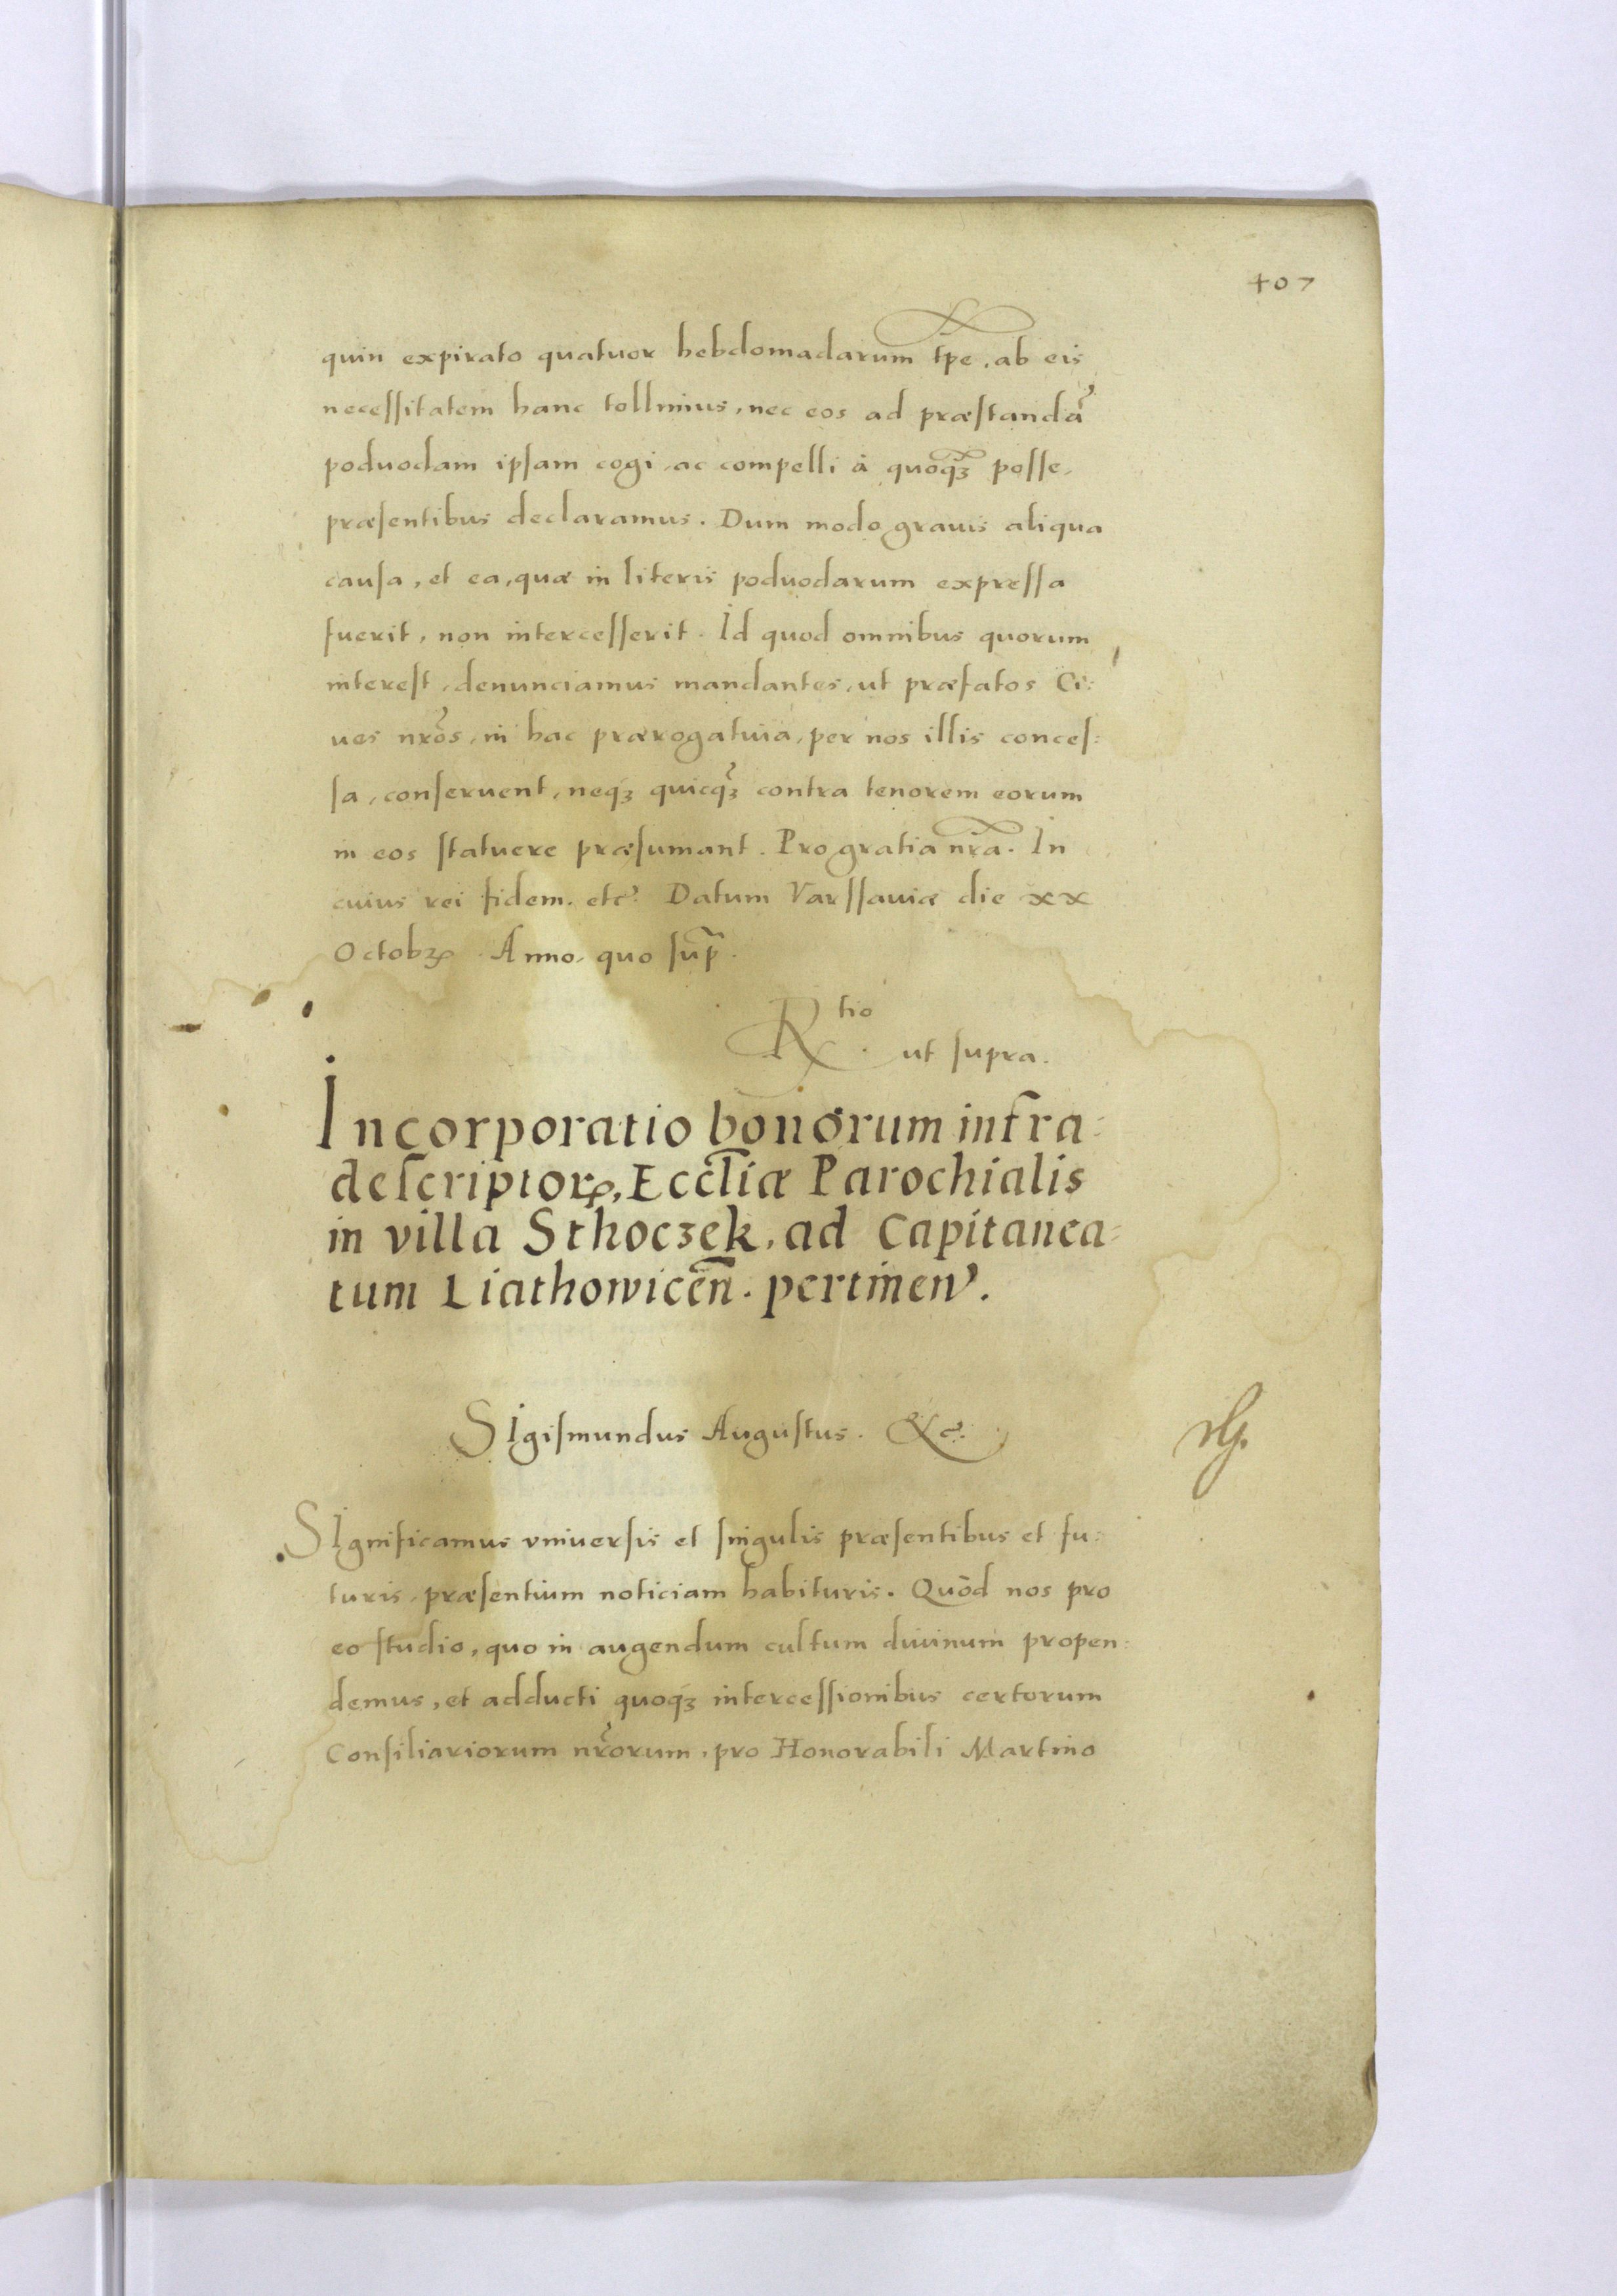 407
quin expirato quatuor hebdomadarum tp̄e, ab eis
necessitatem hanc tollimus, nec eos ad præstandã
poduodam ipsam cogi, ac compelli à quoq̃ꝫ posse,
præsentibus declaramus. Dum modo grauis aliqua
causa, et ea, quæ in literis poduodarum expressa
fuerit, non intercesserit. Id quod omnibus quorum
interest, denunciamus mandantes, ut præfatos Ci:
ues nr̃os, in hac prærogatiua, per nos illis conces:
sa, conseruent, neqꝫ quicq̃ꝫ contra tenorem eorum
in eos statuere præsumant. Pro gratia nr̃a. In
cuius rei fidem. etc. Datum Varssauiæ die xx
Octobꝝ Anno, quo sup̃.
Rtio
ut supra.
Incorporatio bonorum infra:
descriptoꝝ, Eccl̃iæ Parochialis
in villa Sthoczek, ad Capitanea:
tum Liathowicen̄. pertinen.
SIgismundus Augustus. &c.
SIgnificamus vniuersis et singulis præsentibus et fu:
turis, præsentium noticiam habituris. Quòd nos pro
eo studio, quo in augendum cultum diuinum propen:
demus, et adducti quoqꝫ intercessionibus certorum
Consiliariorum nr̃orum, pro Honorabili Martino